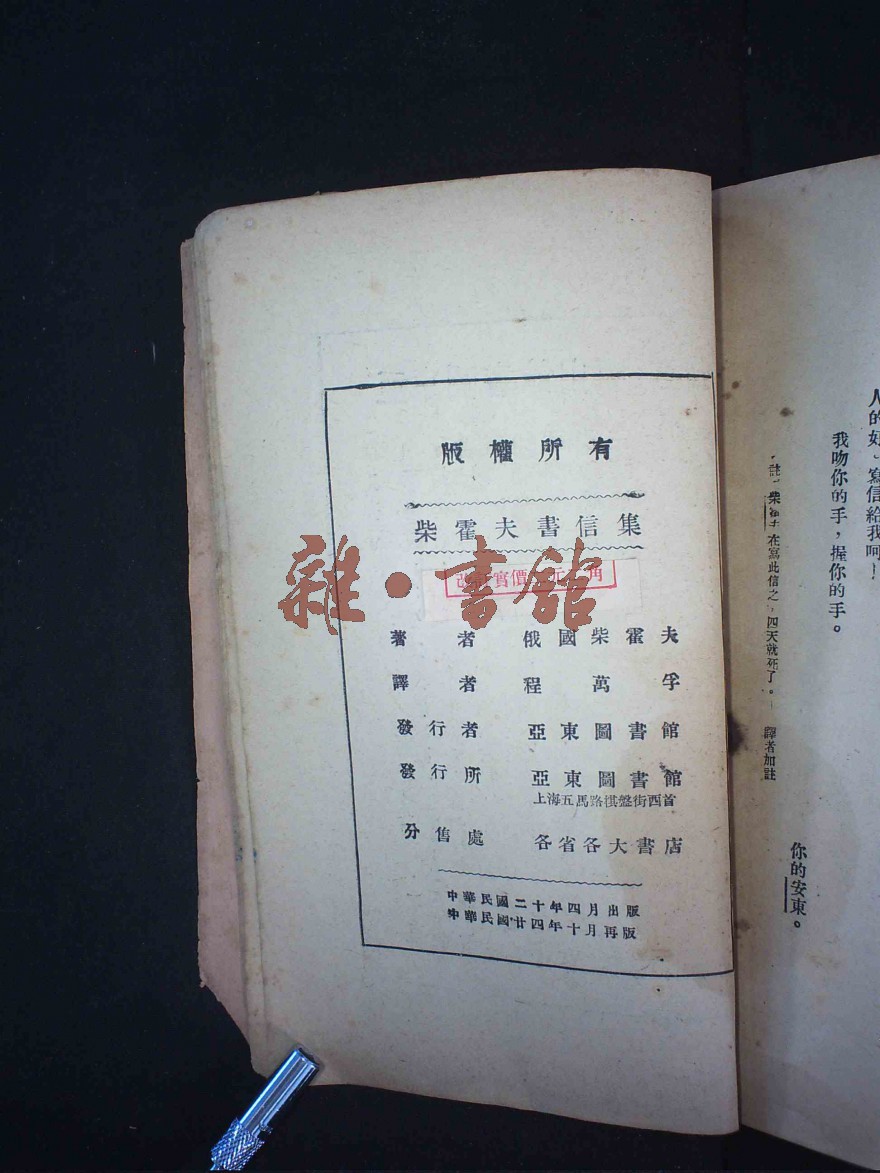 版權所有
柴霍夫書信集
改訂實價
角
雜·書館
著者 俄國柴霍夫
譯者 程萬孚
發行者 亞東圖書館
發行所 亞東圖書館
上海五馬路棋盤街西首
分售處 各省各大書店
中華民國二十年四月出版
中華民國廿四年十月再版
人的好、寫信給我呵！
我吻你的手，握你的手。
你的安東。
註，柴霍夫在寫此信之，四天就死了。 譯者加註